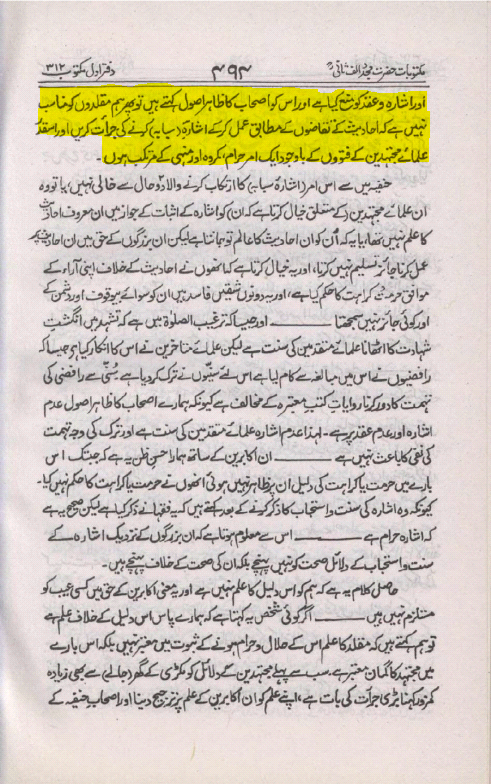 مکتوبات حضرت مجدد الف ثانیؒ ۴۹۴ دفتر اول مکتوب ۳۱۲
اور اشارہ و عقد کو منع کیا ہے اور اس کو اصحاب کا ظاہر اصول کہتے ہیں تو پھر ہم مقلدوں کو مناسب
نہیں ہے کہ احادیث کے تقاضوں کے مطابق عمل کرکے اشارۂ (سبابہ) کرنے کی جرأت کریں اور اسقدر
علمائے مجتہدین کے فتووں کے باوجود ایک امر حرام، مکروہ اور منہی کے مرتکب ہوں۔
حنفیہ میں سے اس امر (اشارۂ سبابہ) کا ارتکاب کرنے والا دو حال سے خالی نہیں، یا تو وہ
ان علمائے مجتہدین کے متعلق خیال کرتا ہے کہ ان کو اشارہ کے اثبات کے جواز میں ان معروف احادیث
کا علم نہیں تھا، یا یہ کہ اُن کو ان احادیث کا عالم تو جانتا ہے لیکن ان بزرگوں کے حق میں ان احادیث پر
عمل کرنا جائز تسلیم نہیں کرتا، اور یہ خیال کرتا ہے کہ انھوں نے احادیث کے خلاف اپنی آراء کے
موافق حرمت و کراہت کا حکم کیا ہے، اور یہ دونوں شقیں فاسد ہیں ان کو سوائے بیوقوف اور دشمن کے
اور کوئی جائز نہیں سمجھتا ــــــ اور جیسا کہ ترغیب الصلوٰۃ میں ہے کہ تشہد میں انگشتِ
شہادت کا اٹھانا علمائے متقدمین کی سنت ہے لیکن علمائے متاخرین نے اس کا انکار کیا ہے جیسا کہ
رافضیوں نے اس میں مبالغہ سے کام لیا ہے اس لئے سنیوں نے ترک کر دیا ہے سُنّی سے رافضی کی
تہمت کا دور کرنا روایاتِ کتب معتبرہ کے مخالف ہے کیونکہ ہمارے اصحاب کا ظاہر اصول عدم
اشارہ اور عدم عقد پر ہے۔ لہذا عدم اشارہ علمائے متقدمین کی سنت ہے اور ترک کی وجہ تہمت
کی نفی کا باعث نہیں ہے ــــــ ان اکابرین کے ساتھ ہمارا حسن ظن یہ ہے کہ جبتک اس
بارے میں حرمت یا کراہت کی دلیل ان پر ظاہر نہیں ہوئی انھوں نے حرمت یا کراہت کا حکم نہیں کیا۔
کیونکہ وہ اشارہ کی سنت و استحباب کا ذکر کرنے کے بعد کہتے ہیں کہ یہ فقہا نے ذکر کیا ہے لیکن صحیح یہ ہے
کہ اشارہ حرام ہے ــــــ اس سے معلوم ہوتا ہے کہ ان بزرگوں کے نزدیک اشارہ کے
سنت و استحباب کے دلائل صحت کو نہیں پہنچے بلکہ ان کی صحت کے خلاف پہنچے ہیں۔
حاصل کلام یہ ہے کہ ہم کو اس دلیل کا علم نہیں ہے اور یہ معنی اکابرین کے حق میں کسی عیب کو
مستلزم نہیں ہیں ــــــ اگر کوئی شخص یہ کہتا ہے کہ ہمارے پاس اس دلیل کے خلاف علم ہے
تو ہم کہتے ہیں کہ مقلد کا علم اس کے حلال و حرام ہونے کے ثبوت میں معتبر نہیں بلکہ اس بارے
میں مجتہد کا گمان معتبر ہے۔ سب سے پہلے مجتہدین کے دلائل کو مکڑی کے گھر (جالے) سے بھی زیادہ
کمزور کہنا بڑی جرأت کی بات ہے، اپنے علم کو ان اکابرین کے علم پر ترجیح دینا اور اصحاب حنفیہ کے